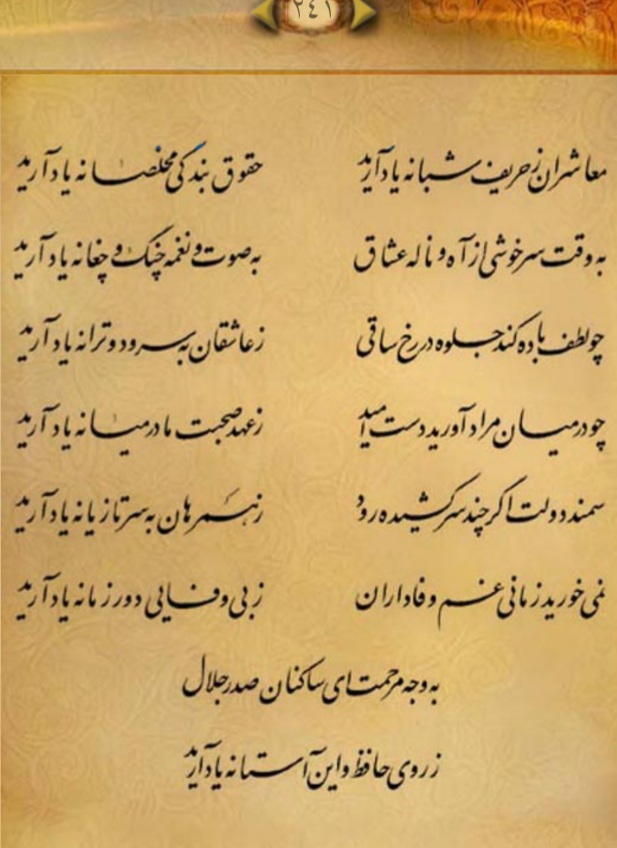 ۲۴۱
معاشران ز حریف شبانه یاد آرید حقوق بندگی مخلصانه یاد آرید
به وقت سرخوشی از آه و ناله عشاق به صوت و نغمه چنگ و چغانه یاد آرید
چو لطف باده کند جلوه در رخ ساقی ز عاشقان به سرود و ترانه یاد آرید
چو در میان مراد آورید دست امید ز عهد صحبت ما در میانه یاد آرید
سمند دولت اگر چند سرکشیده رود ز همرهان به سر تازیانه یاد آرید
نمی خورید زمانی غم وفاداران ز بی وفایی دور زمانه یاد آرید
به وجه مرحمت ای ساکنان صدر جلال
ز روی حافظ و این آستانه یاد آرید